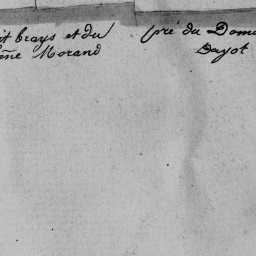 it brays et du
ême Morand
pré du Doma
Dayot